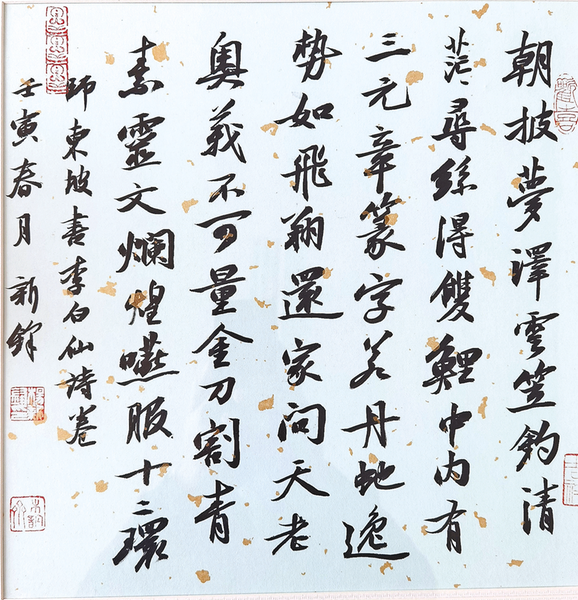 朝披夢澤雲笠釣清
茫尋絲得雙鯉中內有
三元章篆字若丹蛇逸
勢如飛翔還家問天老
奧義不可量金刀割青
素靈文爛煌嚥服十二環
師東坡書李白仙詩卷
壬寅春月 新鋒